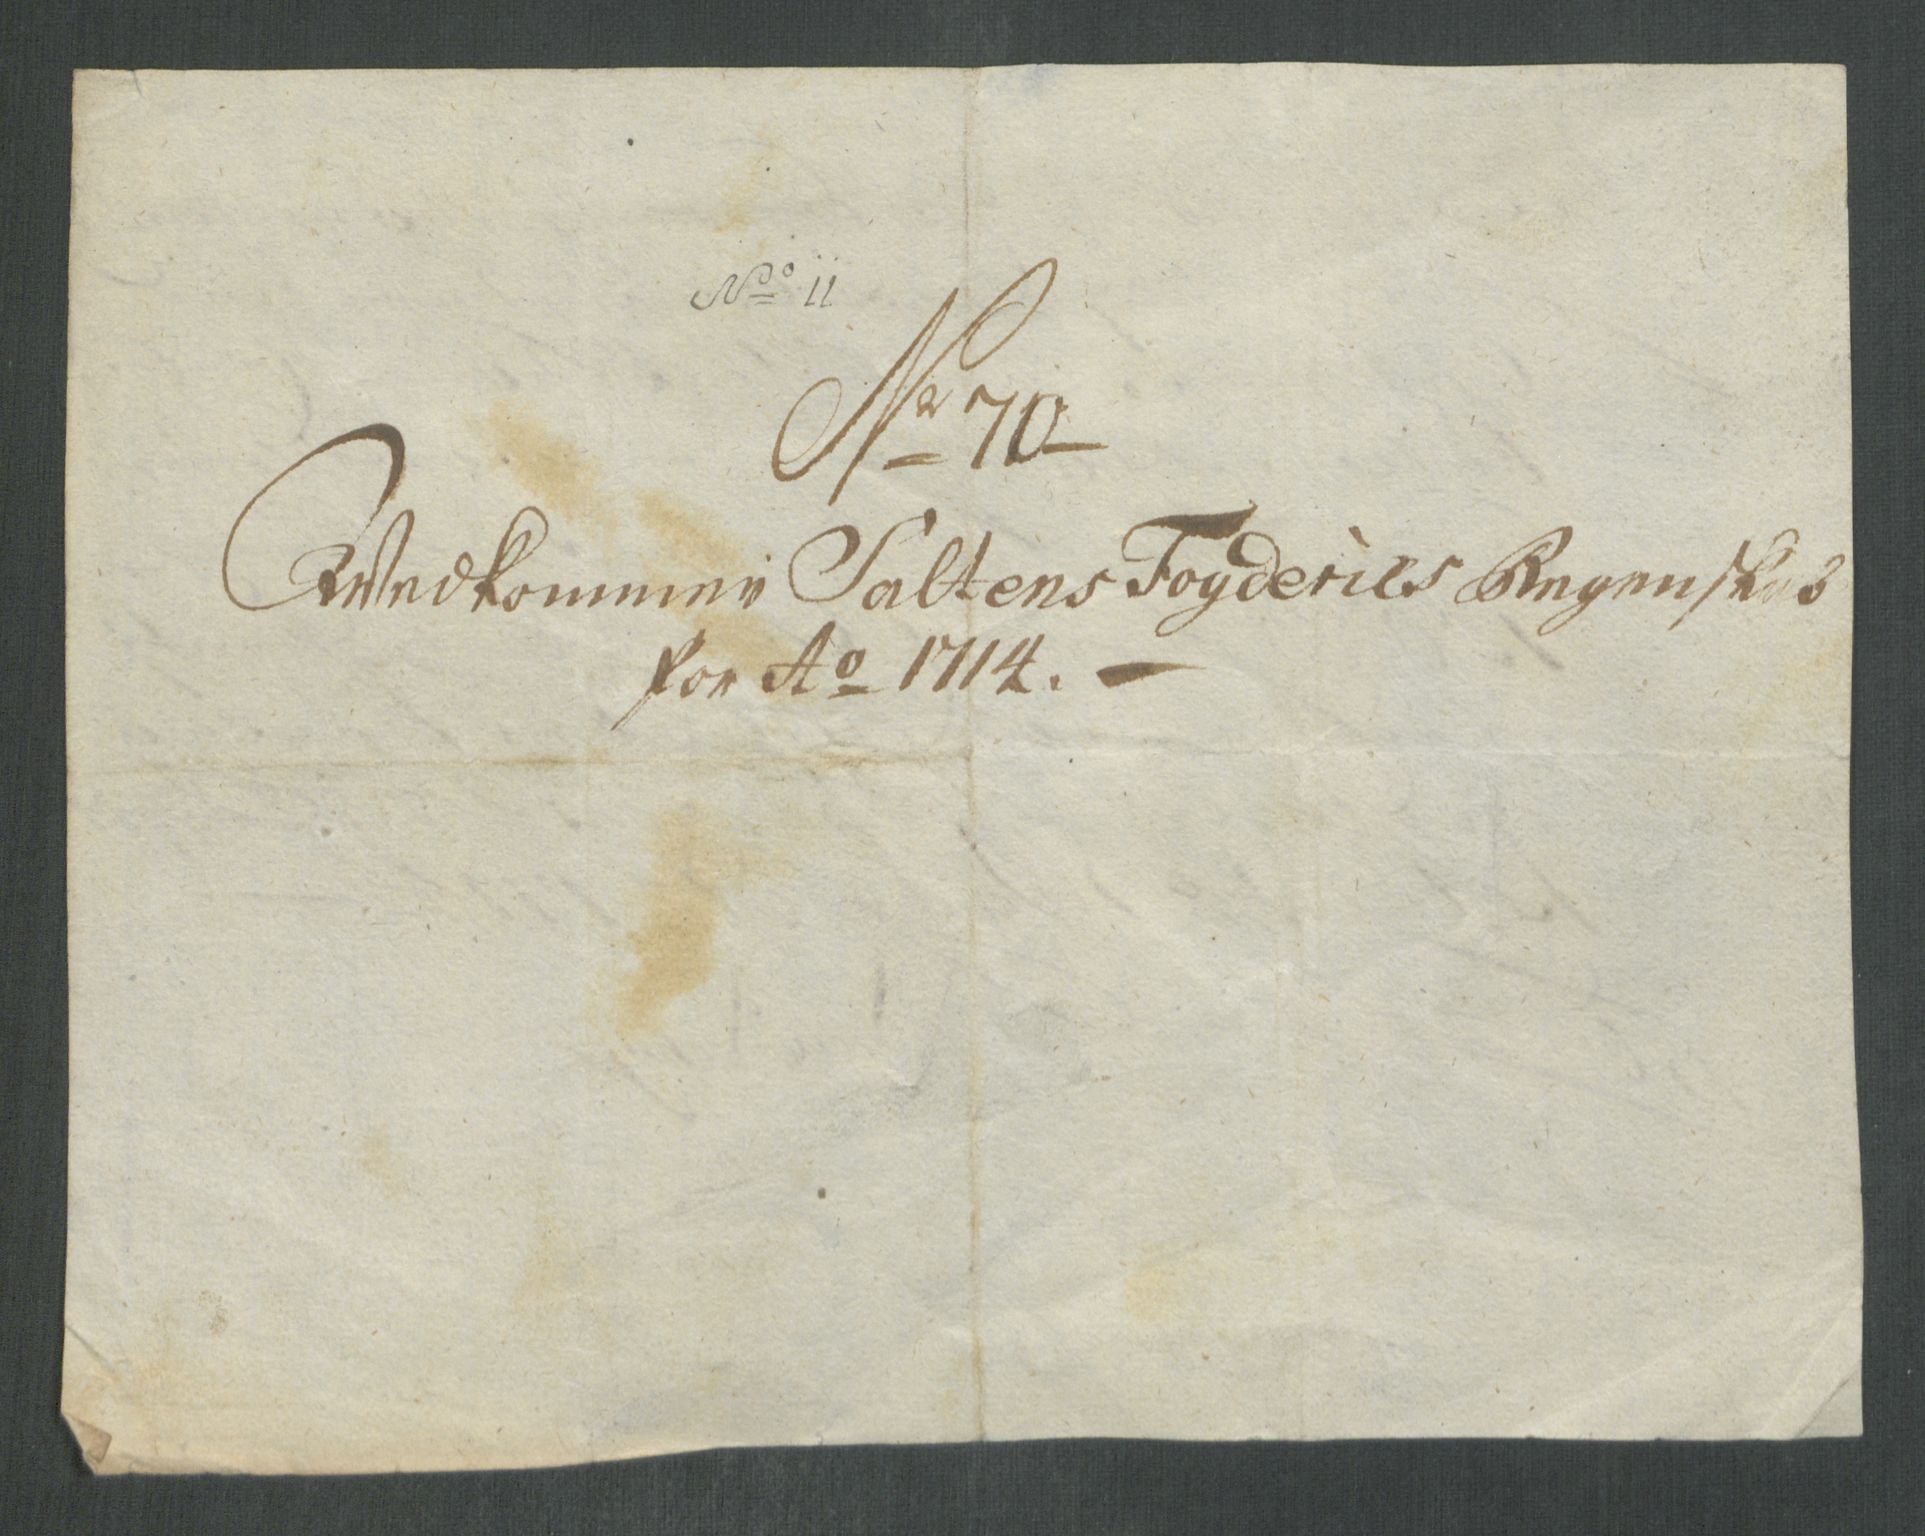 No 11
Nr 70
Vedkommer Saltens Fogderies Regenskab
for Ao 1714.